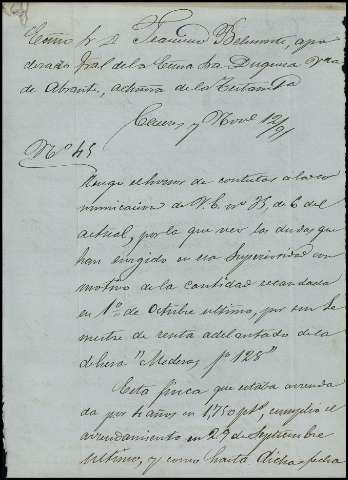 Exmo Sr D. Francisco Belmonte, apo
derado Gral de la Excma Sra. Duquesa Vda
de Abrante, actora de la Testamtria
Caceres y Novre 12/91
No 45
Tengo el honor de contestar a la co
municacion de V.E. no 75, de 6 del
actual, por la que veo las dudas que
han surgido en esa Superioridad con
motivo de la cantidad recaudada
en 1o de Octubre ultimo, por un Se
mestre de renta adelantado de la
dehesa "Mederas fo 128"
Esta finca que estaba arrenda
da por 4 años en 1,750 pts, cumplio el
arrendamiento en 29 de Septiembre
ultimo, y como hasta dicha fecha